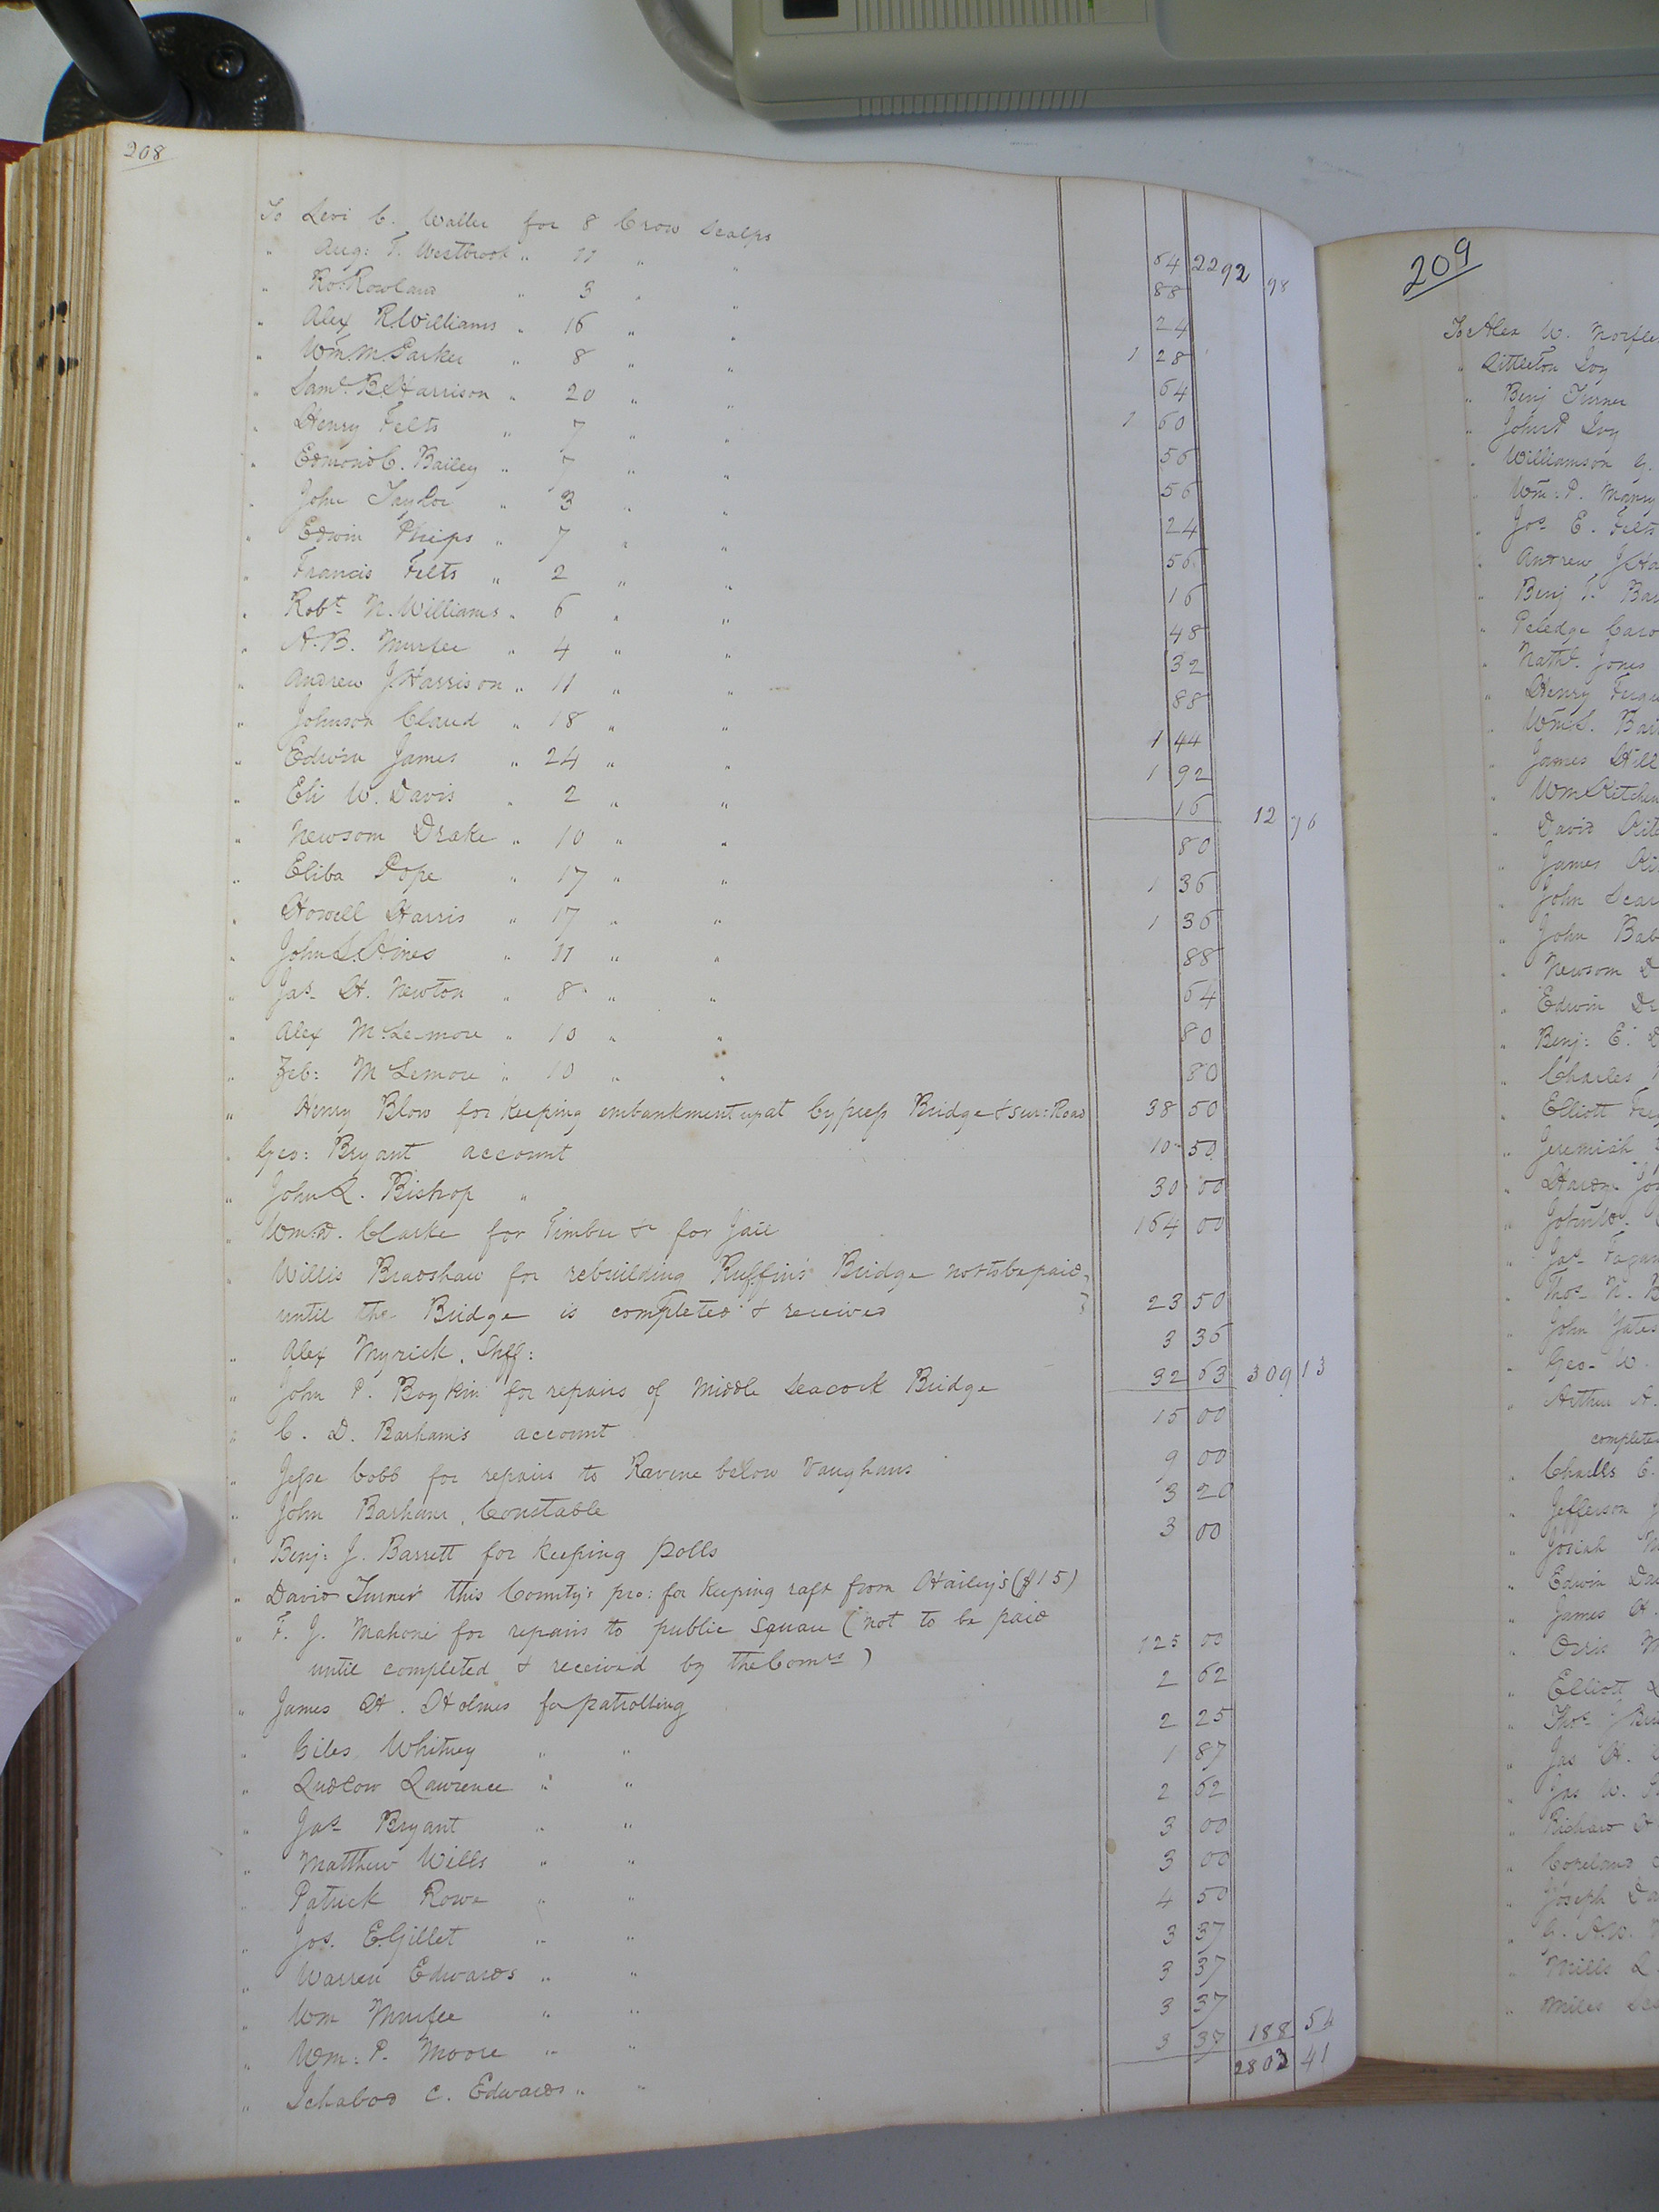 208
To Levi C. Waller for 8 Crow Scalps 64 2292 98
" Aug: T. Westbrook " 11 " " 88
" Ro: Rowland " 3 " " 24
" Alex R. Williams " 16 " " 1 28
" Wm. M. Parker " 8 " " 64
" Saml. B. Harrison " 20 " " 1 60
" Henry Felts " 7 " " 56
" Edmond C. Bailey " 7 " " 56
" John Taylor " 3 " " 24
" Edwin Phips " 7 " " 56
" Francis Felts " 2 " " 16
" Robt. N. Williams " 6 " " 48
" A. B. Murfee " 4 " " 32
" Andrew J. Harrison " 11 " " 88
" Johnson Claud " 18 " " 1 44
" Edwin James " 24 " " 1 92
" Eli W. Davis " 2 " " 16 12 76
" Newsom Drake " 10 " " 80
" Eliba Pope " 17 " " 1 36
" Howell Harris " 17 " " 1 36
" John L. Hines " 11 " " 88
" Jas. H. Newton " 8 " " 64
" Alex McLemore " 10 " " 80
" Zeb: McLemore " 10 " " 80
" Henry Blow for keeping embankment up at Cypress Bridge & sur: Road 38 50
" Geo: Bryant account 10 50
" John L. Bishop " 30 00
" Wm. D. Clarke for Timber &c for Jail 164 00
" Willis Bradshaw for rebuilding Ruffin's Bridge not to be paid
until the Bridge is completed & received 23 50
" Alex Myrick, Shff: 3 36
" John P. Boykin for repairs of Middle Seacock Bridge 32 63 309 13
" C. D. Barham's account 15 00
" Jesse Cobb for repairs to Ravine below Vaughans 9 00
" John Barham, Constable 3 20
" Benj: J. Barrett for keeping polls 3 00
" David Turner this County's pro: for keeping raft from Hailey's ($15)
" F. J. Mahone for repairs to public Square (not to be paid
until completed & received by the Comrs) 125 00
" James H. Holmes for patrolling 2 62
" Giles Whitney " " 2 25
" Ludlow Lawrence " " 1 87
" Jas. Bryant " " 2 62
" Matthew Wills " " 3 00
" Patrick Rowe " " 3 00
" Jos. E. Gillet " " 4 50
" Warren Edwards " " 3 37
" Wm Murfee " " 3 37
" Wm: P. Moore " " 3 37
" Ichabod C. Edwards " " 3 37 188 54
2803 41
209
To Alex W.
" Littleton Ivy
" Benj Turner
" John P Ivy
" Williamson
" Wm: P.
" Jos. E. Felts
" Andrew J.
" Benj T.
"
" Nathl. Jones
" Henry
" Wm S.
" James Hill
" Wm
" David
" James
" John
" John
" Newsom
" Edwin
" Benj: E.
" Charles
" Elliott
" Jeremiah
"
" John
" Jas.
" Thos. N.
" John Yates
" Geo. W.
" Arthur A.
completed
" Charles E.
" Jefferson
" Josiah
" Edwin
" James H.
"
" Elliott
" Thos.
" Jas H.
" Jas W.
" Richard
" Copeland
" Joseph
"
" Mills
" Miles